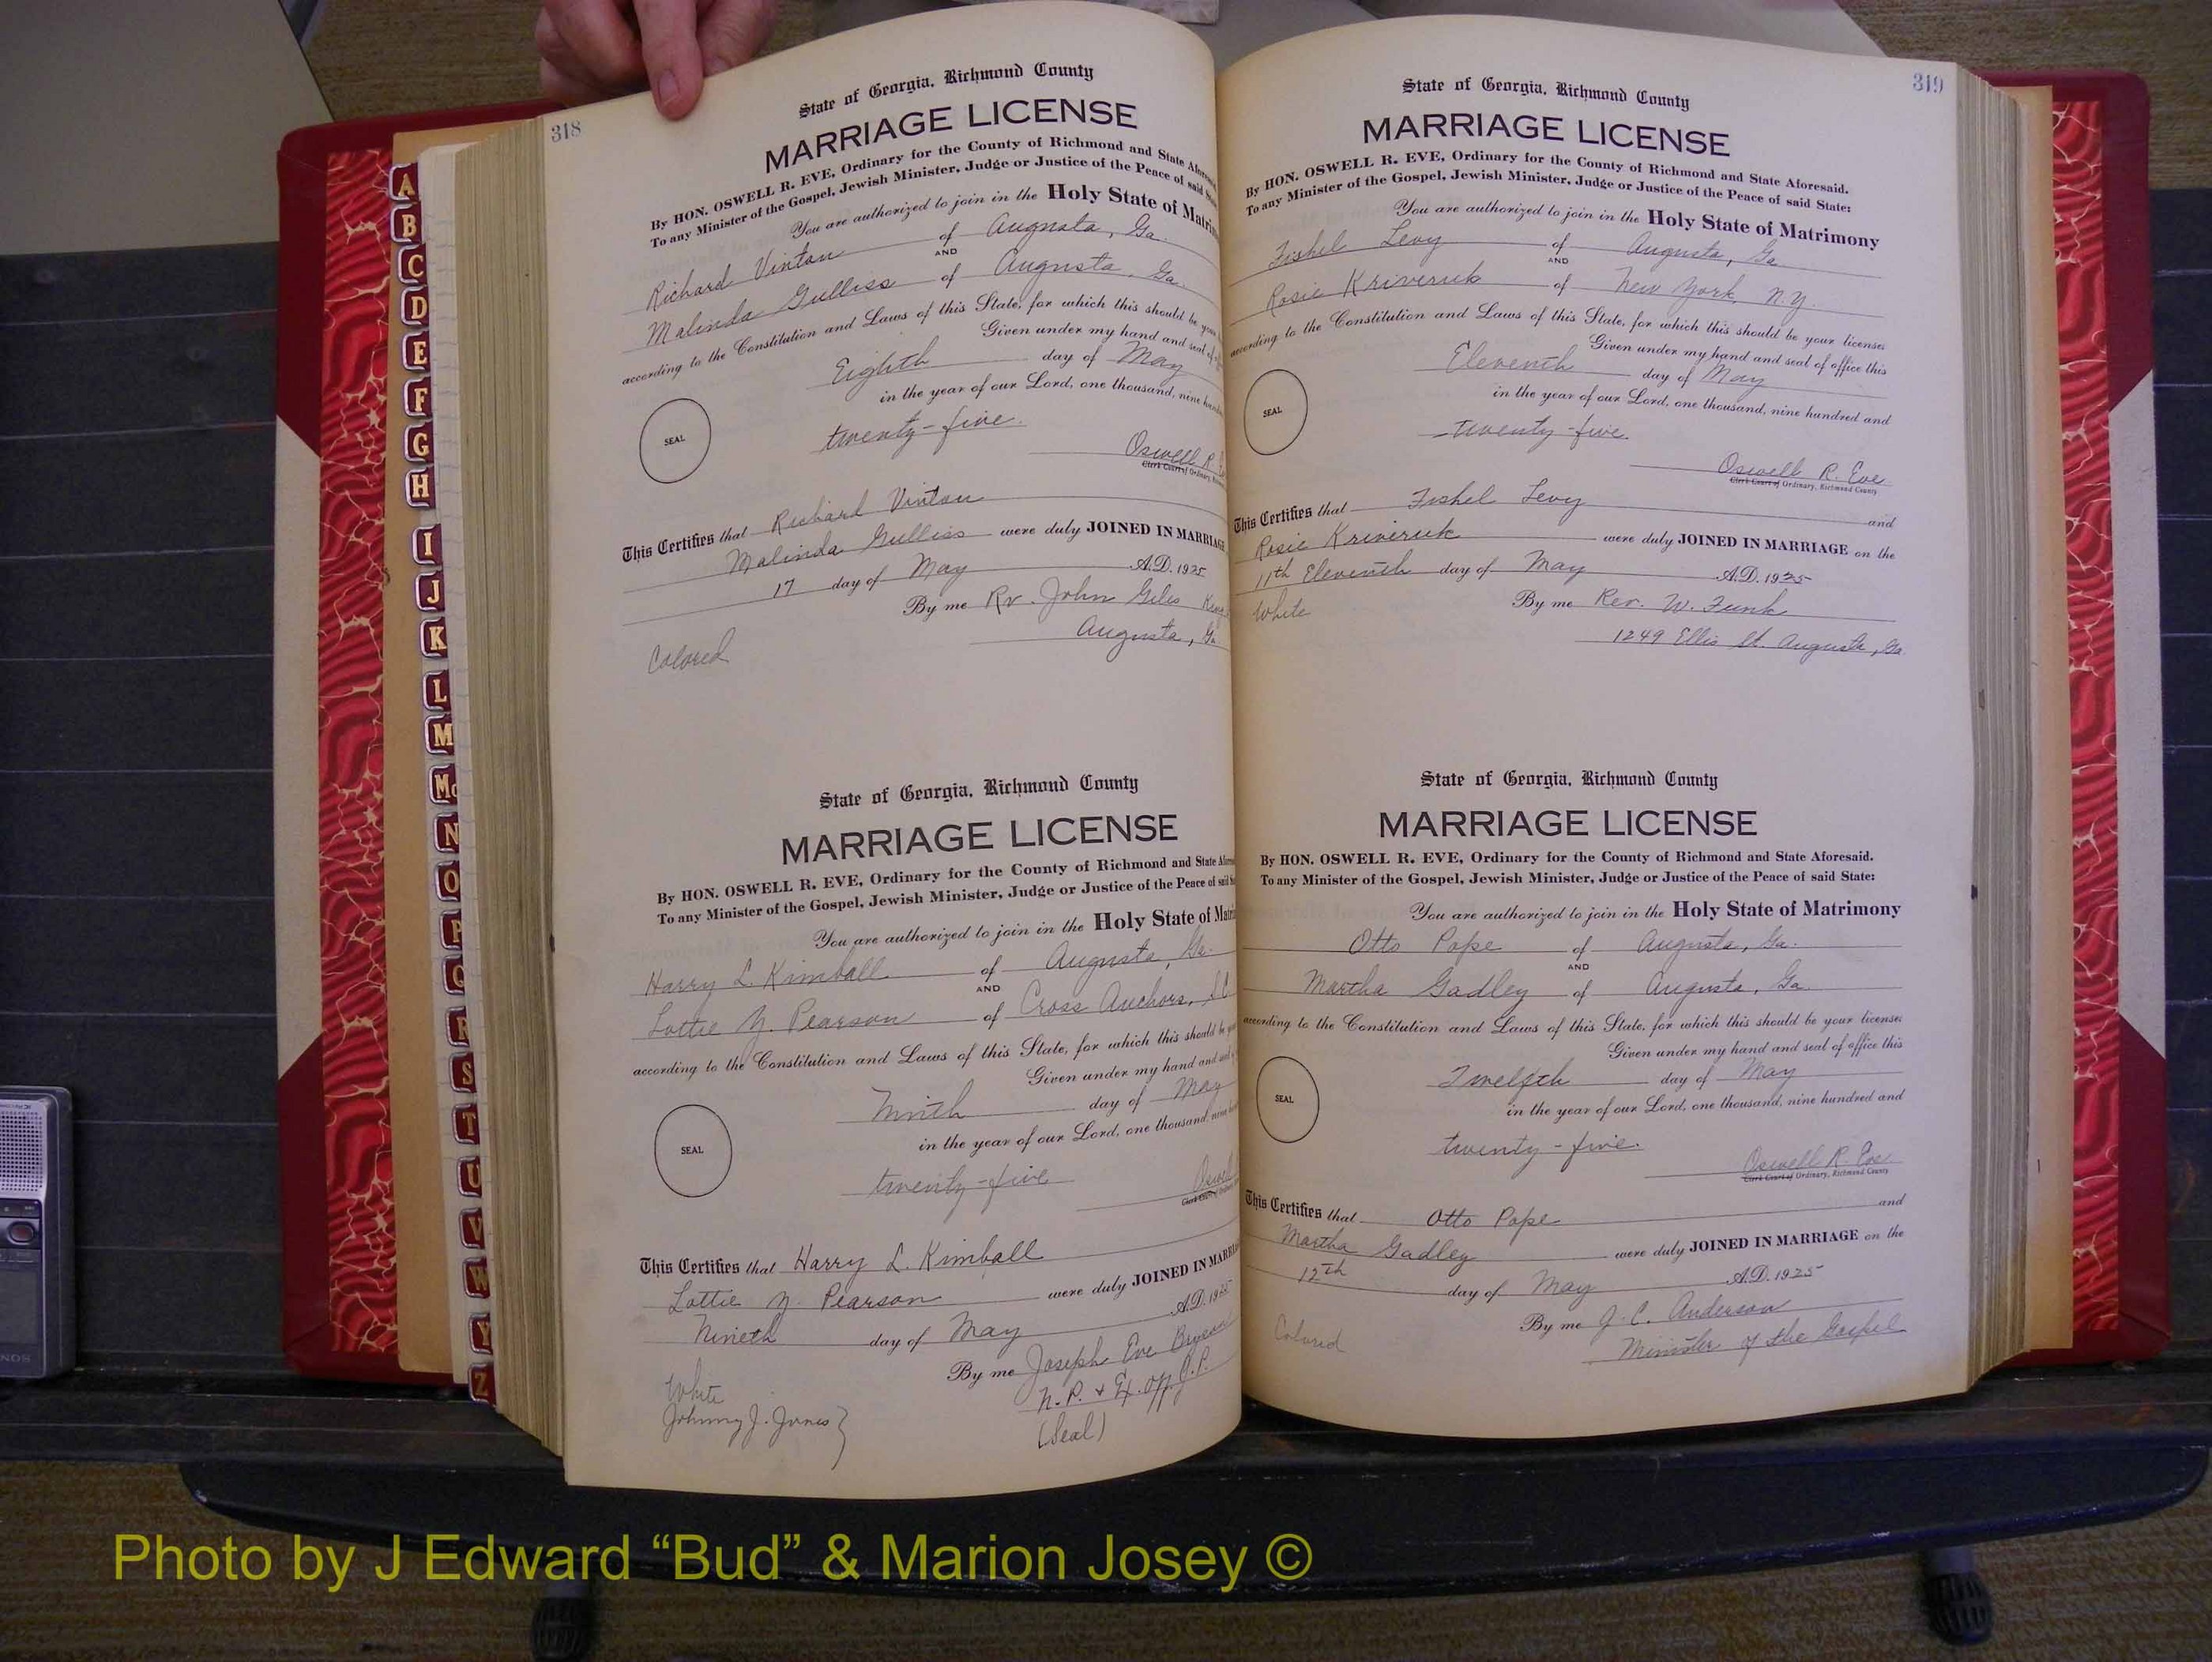 318
State of Georgia, Richmond County
MARRIAGE LICENSE
By HON. OSWELL R. EVE, Ordinary for the County of Richmond and State Afores
To any Minister of the Gospel, Jewish Minister, Judge or Justice of the Peace of said
You are authorized to join in the Holy State of Matrim
Richard Vinton of Augusta, Ga.
AND
Malinda Gulliss of Augusta, Ga.
according to the Constitution and Laws of this State, for which this should be your
Given under my hand and seal of
Eighth day of May
in the year of our Lord, one thousand, nine hund
twenty-five.
SEAL
Oswell R. E
Clerk Court of Ordinary,
This Certifies that Richard Vinton
Malinda Gulliss were duly JOINED IN MARRIAGE
17 day of May A.D. 1925
By me Rv. John Giles
Augusta, Ga
Colored
State of Georgia, Richmond County
MARRIAGE LICENSE
By HON. OSWELL R. EVE, Ordinary for the County of Richmond and State Afores
To any Minister of the Gospel, Jewish Minister, Judge or Justice of the Peace of said
You are authorized to join in the Holy State of Matri
Harry L. Kimball of Augusta, Ga.
AND
Lottie Y. Pearson of Cross Anchors, S.C.
according to the Constitution and Laws of this State, for which this should be
Given under my hand and seal
Ninth day of May
in the year of our Lord, one thousand, nine
twenty-five
SEAL
Oswell
Clerk Court of
This Certifies that Harry L. Kimball
Lottie Y. Pearson were duly JOINED IN MARRIA
Nineth day of May A.D. 1925
By me Joseph Eve
N.P. & Ex. Off J.P.
(Seal)
White
Johnny J. Jones
319
State of Georgia, Richmond County
MARRIAGE LICENSE
By HON. OSWELL R. EVE, Ordinary for the County of Richmond and State Aforesaid.
To any Minister of the Gospel, Jewish Minister, Judge or Justice of the Peace of said State:
You are authorized to join in the Holy State of Matrimony
Fishel Levy of Augusta, Ga.
AND
Rosie Kriveruk of New York, N.Y.
according to the Constitution and Laws of this State, for which this should be your licenses
Given under my hand and seal of office this
Eleventh day of May
in the year of our Lord, one thousand, nine hundred and
twenty-five.
SEAL
Oswell R. Eve
Clerk Court of Ordinary, Richmond County
This Certifies that Fishel Levy and
Rosie Kriveruk were duly JOINED IN MARRIAGE on the
11th Eleventh day of May A.D. 1925
By me Rev. W. Funk
1249 Ellis St. Augusta, Ga.
White
State of Georgia, Richmond County
MARRIAGE LICENSE
By HON. OSWELL R. EVE, Ordinary for the County of Richmond and State Aforesaid.
To any Minister of the Gospel, Jewish Minister, Judge or Justice of the Peace of said State:
You are authorized to join in the Holy State of Matrimony
Otto Pope of Augusta, Ga.
AND
Martha Gadley of Augusta, Ga.
according to the Constitution and Laws of this State, for which this should be your licenses
Given under my hand and seal of office this
Twelfth day of May
in the year of our Lord, one thousand, nine hundred and
twenty-five.
SEAL
Oswell R. Eve
Clerk Court of Ordinary, Richmond County
This Certifies that Otto Pope and
Martha Gadley were duly JOINED IN MARRIAGE on the
12th day of May A.D. 1925
By me J. C. Anderson
Minister of the Gospel
Colored
A
B
C
D
E
F
G
H
I
J
K
L
M
Mc
N
O
P
Q
R
S
T
U
V
W
Y
Z
Photo by J Edward “Bud” & Marion Josey ©